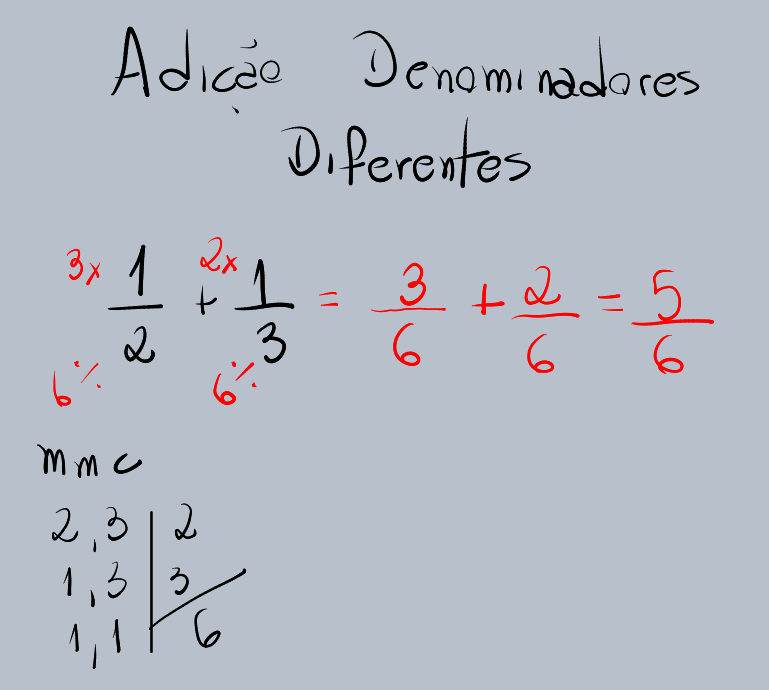 Adição Denominadores
Diferentes
3x 1/2 + 2x 1/3 = 3/6 + 2/6 = 5/6
6÷ 6÷
mmc
2,3 | 2
1,3 | 3
1,1 | 6